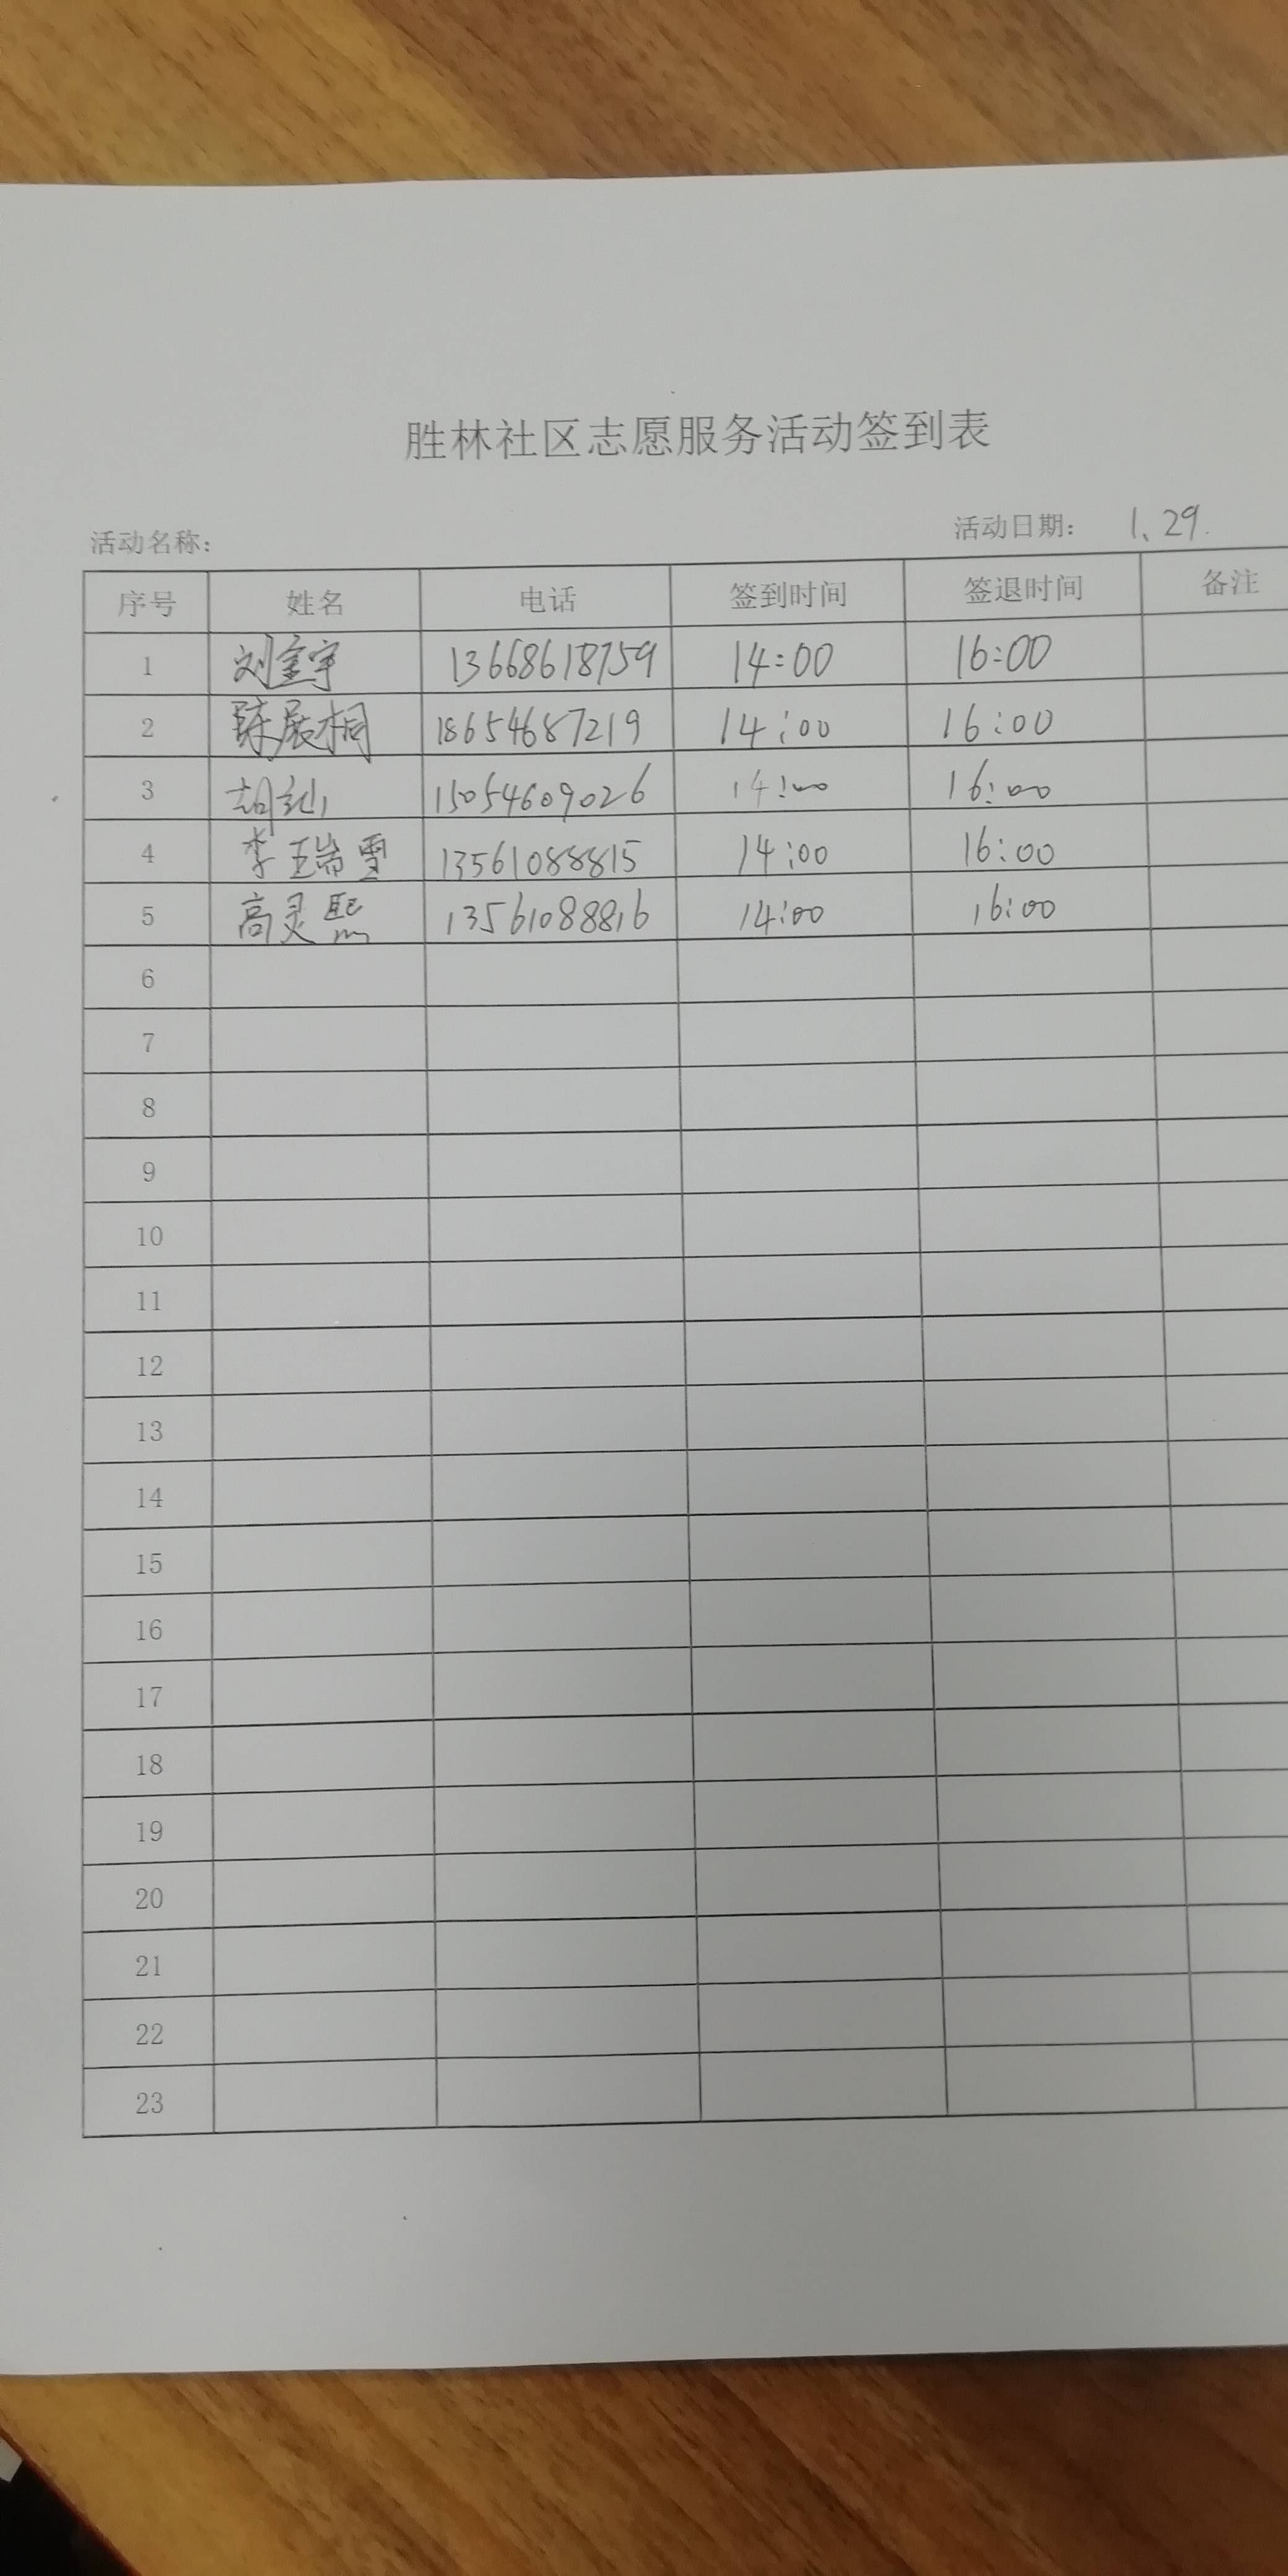 胜林社区志愿服务活动签到表
活动名称： 活动日期： 1、29.
序号 姓名 电话 签到时间 签退时间 备注
1 刘金宇 13668618759 14:00 16:00
2 陈展桐 18654687219 14:00 16:00
3 胡 15054609026 14:00 16:00
4 李瑞雪 13561088815 14:00 16:00
5 高灵熙 13561088816 14:00 16:00
6
7
8
9
10
11
12
13
14
15
16
17
18
19
20
21
22
23